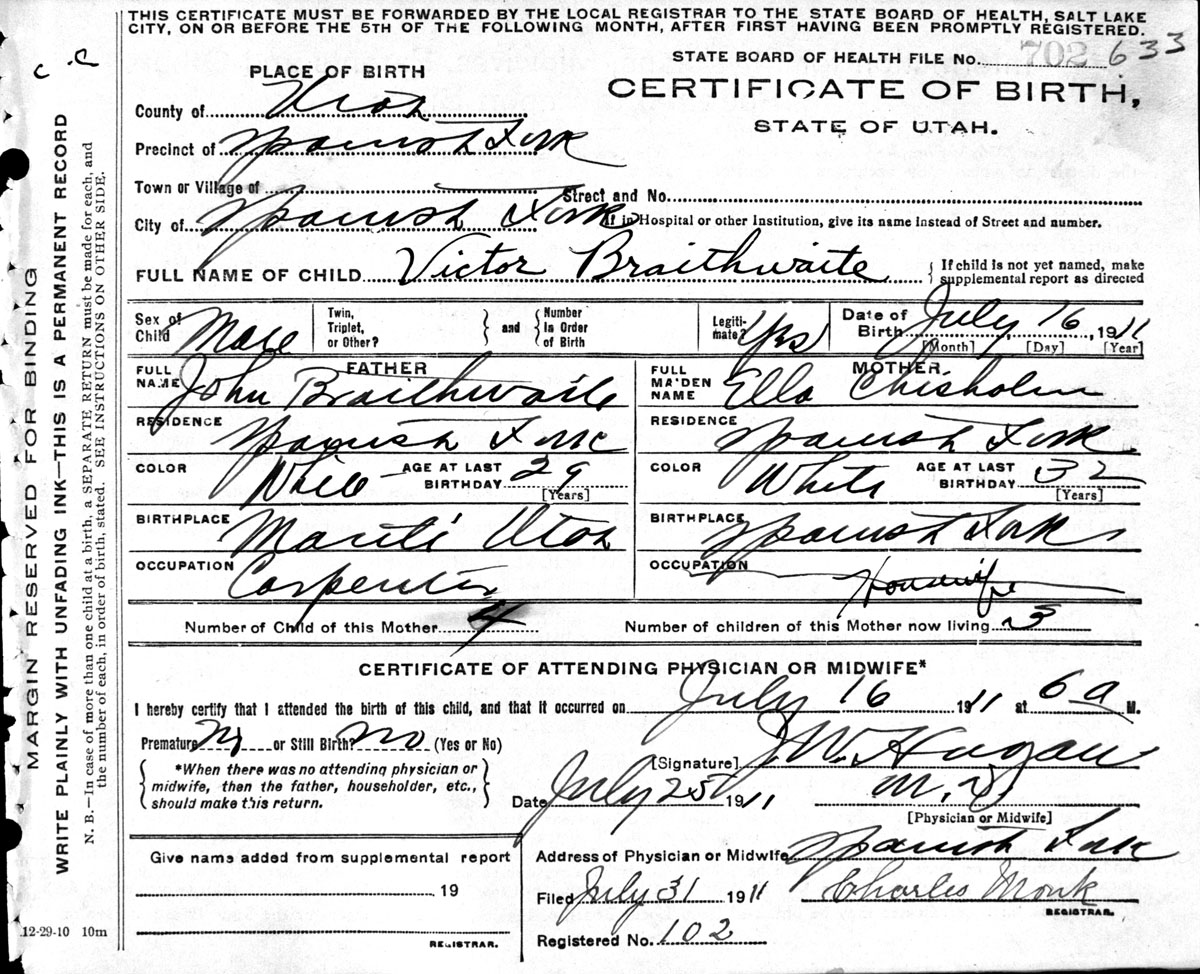 THIS CERTIFICATE MUST BE FORWARDED BY THE LOCAL REGISTRAR TO THE STATE BOARD OF HEALTH, SALT LAKE
CITY, ON OR BEFORE THE 5TH OF THE FOLLOWING MONTH, AFTER FIRST HAVING BEEN PROMPTLY REGISTERED.
STATE BOARD OF HEALTH FILE No. 702-633
C .C
PLACE OF BIRTH
CERTIFICATE OF BIRTH,
STATE OF UTAH.
County of Utah
Precinct of Spanish Fork
Town or Village of Street and No.
City of Spanish Fork (If in Hospital or other Institution, give its name instead of Street and number.
FULL NAME OF CHILD Victor Braithwaite { If child is not yet named, make supplemental report as directed
Sex of Child Male Twin, Triplet, or Other? } and { Number in Order of Birth Legitimate? Yes Date of Birth July 16, 1911
[Month] [Day] [Year]
FATHER MOTHER
FULL NAME John Braithwaite FULL MAIDEN NAME Ella Chisholm
RESIDENCE Spanish Fork RESIDENCE Spanish Fork
COLOR White AGE AT LAST BIRTHDAY 29 [Years] COLOR White AGE AT LAST BIRTHDAY 32 [Years]
BIRTHPLACE Manti Utah BIRTHPLACE Spanish Fork
OCCUPATION Carpenter OCCUPATION Housewife
Number of Child of this Mother 4 Number of children of this Mother now living 3
CERTIFICATE OF ATTENDING PHYSICIAN OR MIDWIFE*
I hereby certify that I attended the birth of this child, and that it occurred on July 16 1911 at 6 a M.
Premature No or Still Birth? No (Yes or No)
{ *When there was no attending physician or midwife, then the father, householder, etc., should make this return. }
[Signature] J.W. Hagan
Date July 25 1911 M.D.
[Physician or Midwife]
Give name added from supplemental report
19
REGISTRAR.
Address of Physician or Midwife Spanish Fork
Filed July 31 1911 Charles Monk
REGISTRAR.
Registered No. 102
12-29-10 10m
MARGIN RESERVED FOR BINDING
WRITE PLAINLY WITH UNFADING INK—THIS IS A PERMANENT RECORD
N. B.—In case of more than one child at a birth, a SEPARATE RETURN must be made for each, and
the number of each, in order of birth, stated. SEE INSTRUCTIONS ON OTHER SIDE.